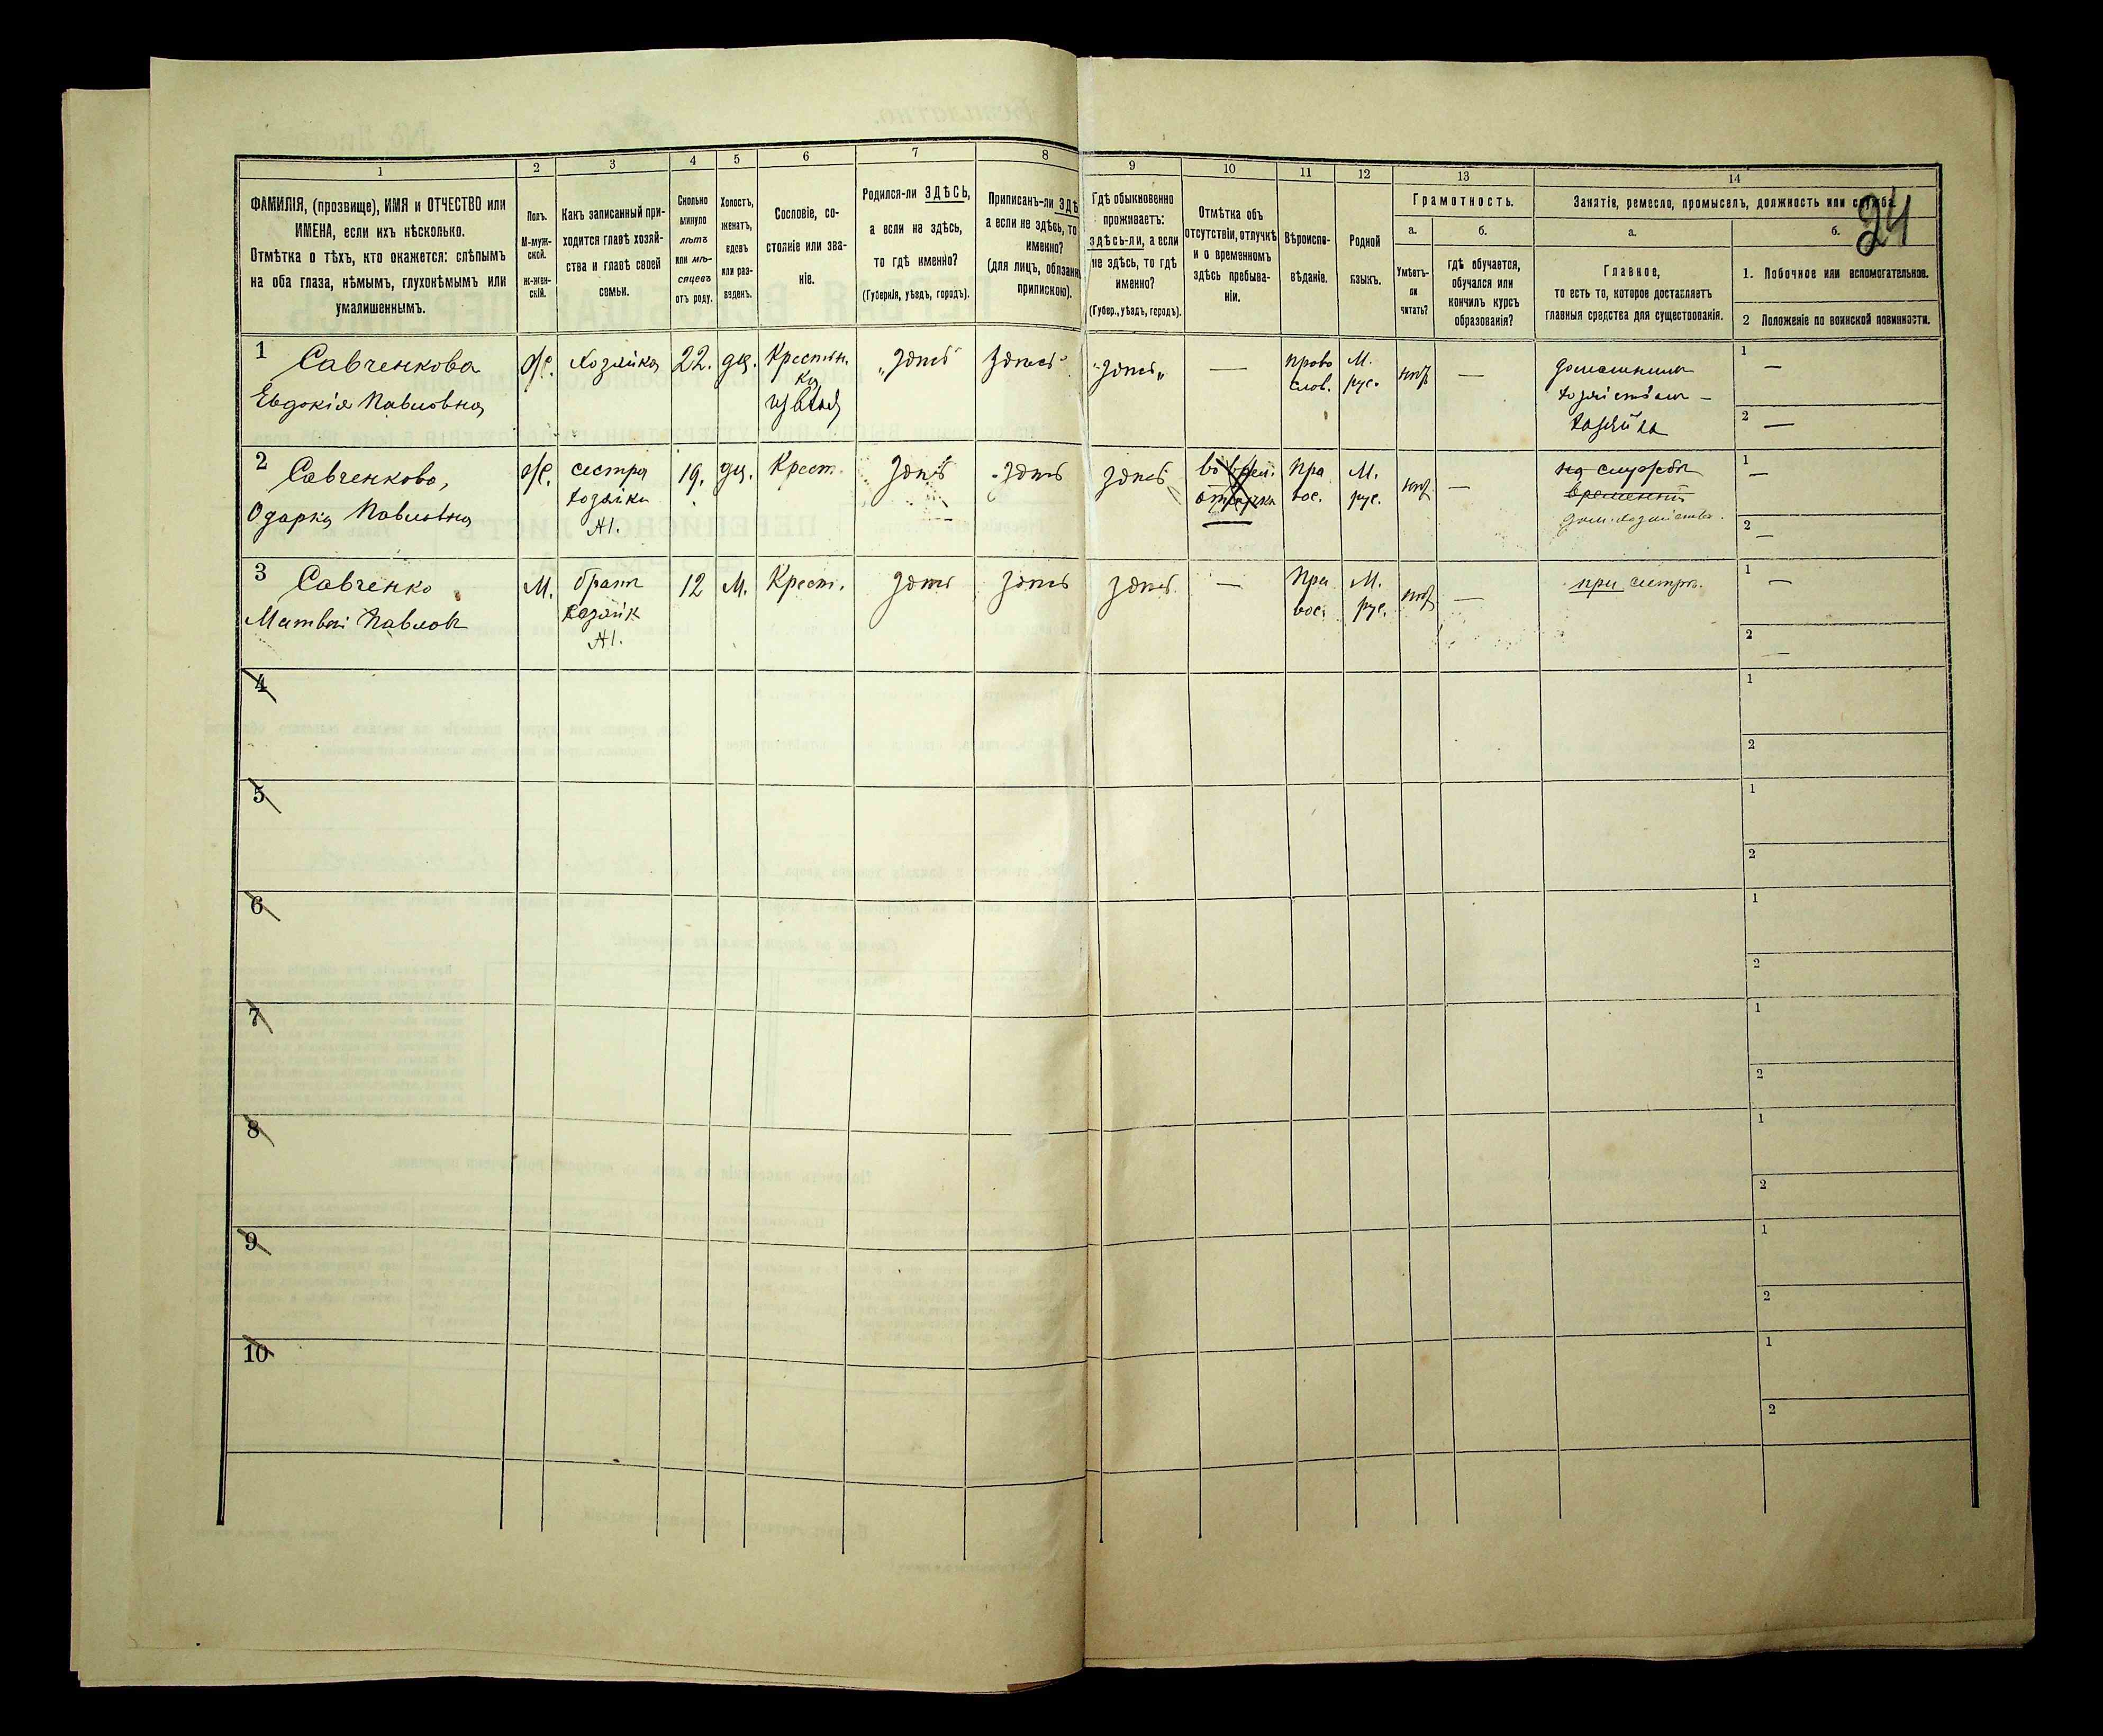 24
1
2
3
4
5
6
7
8
9
10
11
12
13
14
ФАМИЛІЯ, (прозвище), ИМЯ и ОТЧЕСТВО или
ИМЕНА, если ихъ нѣсколько.
Отмѣтка о тѣхъ, кто окажется: слѣпымъ
на оба глаза, нѣмымъ, глухонѣмымъ или
умалишеннымъ.
Полъ.
М-муж-
ской.
ж-жен-
скій.
Какъ записанный при-
ходится главѣ хозяй-
ства и главѣ своей
семьи.
Сколько
минуло
лѣтъ
или мѣ-
сяцевъ
отъ роду.
Холостъ,
женатъ,
вдовъ
или раз-
веденъ.
Сословіе, со-
стояніе или зва-
ніе.
Родился-ли ЗДѢСЬ,
а если не здѣсь,
то гдѣ именно?
(Губернія, уѣздъ, городъ).
Приписанъ-ли ЗДѢ
а если не здѣсь, то
именно?
(для лицъ, обязанн
припискою).
Гдѣ обыкновенно
проживаетъ:
здѣсь-ли, а если
не здѣсь, то гдѣ
именно?
(Губер., уѣздъ, городъ).
Отмѣтка объ
отсутствіи, отлучкѣ
и о временномъ
здѣсь пребыва-
ніи.
Вѣроиспо-
вѣданіе.
Родной
языкъ.
Грамотность.
а.
Умѣетъ-
ли
читать?
б.
гдѣ обучается,
обучался или
кончилъ курсъ
образованія?
Занятіе, ремесло, промыселъ, должность или служба.
а.
Главное,
то есть то, которое доставляетъ
главныя средства для существованія.
б.
1. Побочное или вспомогательное.
2 Положеніе по воинской повинности.
1 Савченкова
Евдокія Павловна
Ж.
Хозяйка
22.
дѣв.
Крестьян
ка
"здѣсь"
здѣсь"
"здѣсь"
—
право
слав.
М.
рус.
нѣтъ
—
домашнимъ
хозяйствомъ –
хозяйка
1 —
2 —
2 Савченкова,
Одарка Павловна
Ж.
сестра
хозяйки
№1.
19.
дѣв.
Крест.
здѣсь
здѣсь
здѣсь
во врем.
отлучкѣ
Пра
вос.
М.
рус.
нѣтъ
—
на службѣ
временной
дом. хозяйство.
1 —
2 —
3 Савченко
Матвѣй Павлов
М.
братъ
хозяйк
№1.
12
М.
Крест.
здѣсь
здѣсь
здѣсь
—
Пра
вос.
М.
рус.
нѣтъ
—
при сестрѣ.
1 —
2 —
4
1
2
5
1
2
6
1
2
7
1
2
8
1
2
9
1
2
10
1
2